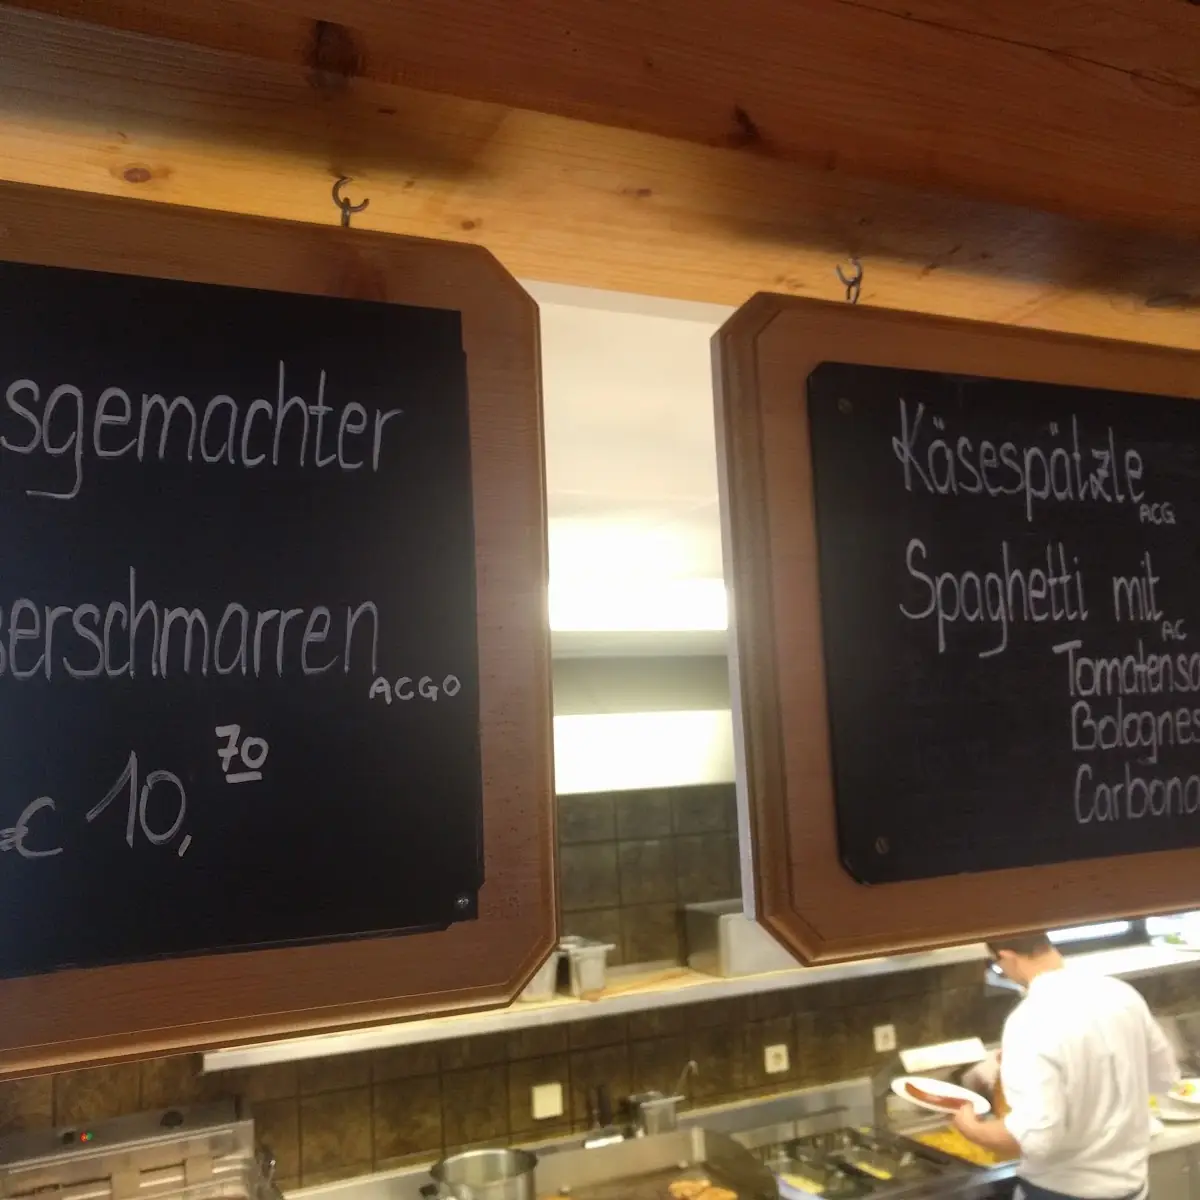 sgemachter
serschmarren
ACGO
€ 10,70
Käsespätzle
ACG
Spaghetti mit
AC
Tomatenso
Bolognes
Carbona